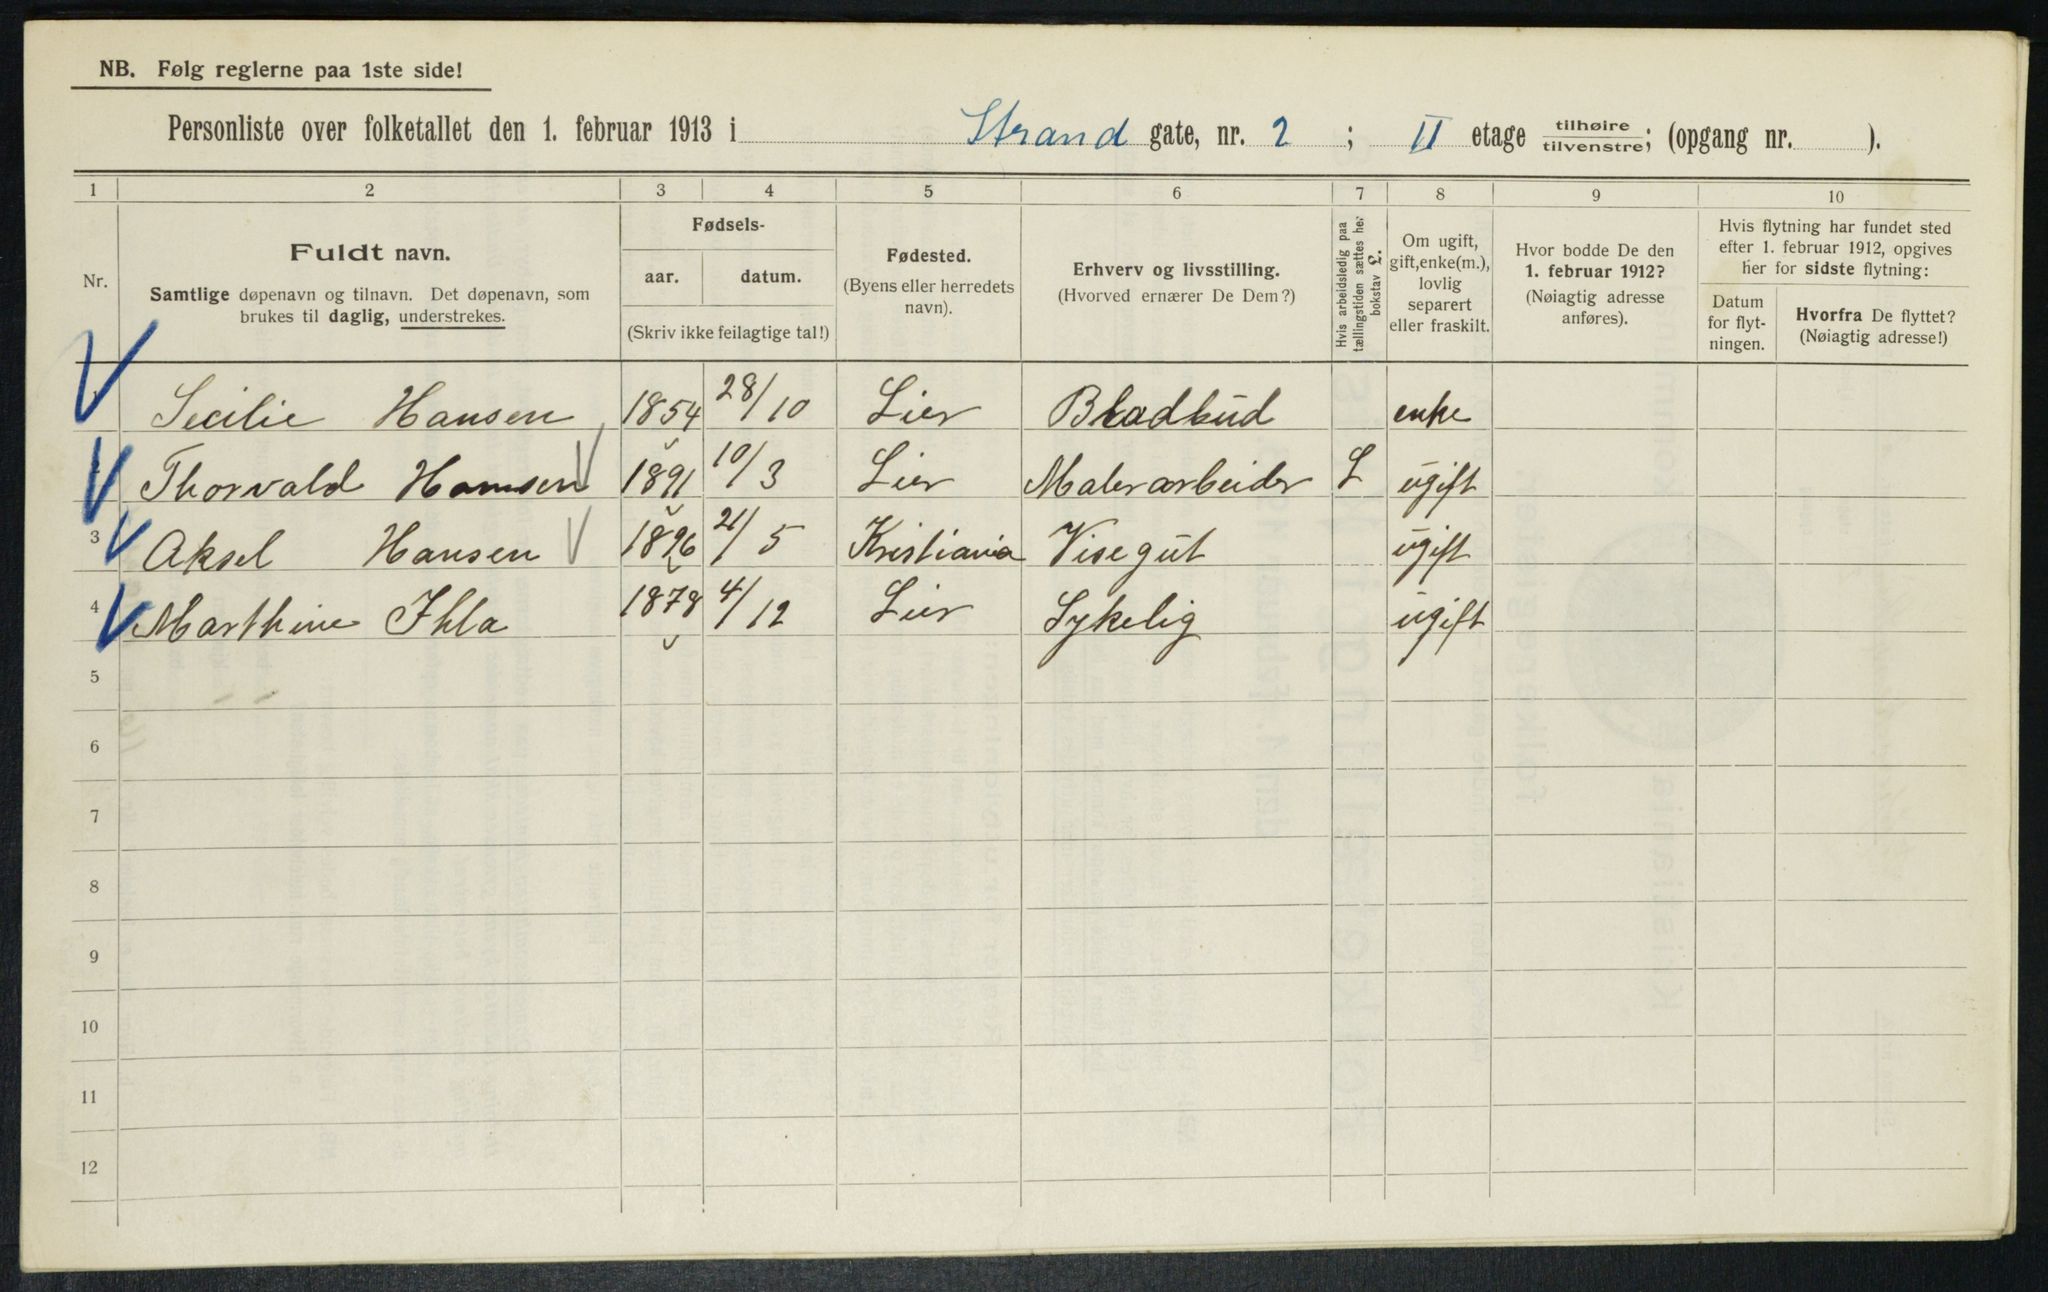 NB. Følg reglerne paa 1ste side!
Personliste over folketallet den 1. februar 1913 i Strand gate, nr. 2 ; II etage tilhøire/tilvenstre; (opgang nr. ).
1 2 3 4 5 6 7 8 9 10
Nr.
Fuldt navn.
Samtlige døpenavn og tilnavn. Det døpenavn, som
brukes til daglig, understrekes.
Fødsels-
aar. datum.
(Skriv ikke feilagtige tal!)
Fødested.
(Byens eller herredets
navn).
Erhverv og livsstilling.
(Hvorved ernærer De Dem?)
Hvis arbeidsledig paa
tællingstiden sættes her
bokstav L.
Om ugift,
gift, enke(m.),
lovlig
separert
eller fraskilt.
Hvor bodde De den
1. februar 1912?
(Nøiagtig adresse
anføres).
Hvis flytning har fundet sted
efter 1. februar 1912, opgives
her for sidste flytning:
Datum
for flyt-
ningen.
Hvorfra De flyttet?
(Nøiagtig adresse!)
Secilie Hansen 1854 28/10 Lier Bladbud enke
Thorvald Hansen 1891 10/3 Lier Malerarbeider L ugift
3 Aksel Hansen 1896 21/5 Kristiania Visegut ugift
4 Marthine Ihla 1878 4/12 Lier Sykelig ugift
5
6
7
8
9
10
11
12